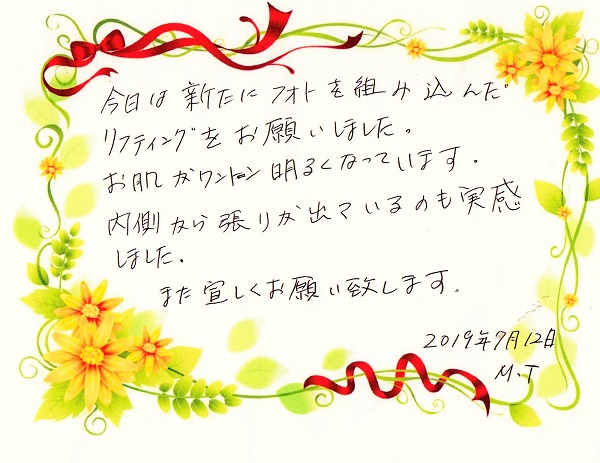 今日は新たにフォトを組み込んだ
リフティングをお願いしました。
お肌がワントーン明るくなっています。
内側から張りが出ているのも実感
しました。
また宜しくお願い致します。
2019年7月12日
M.T